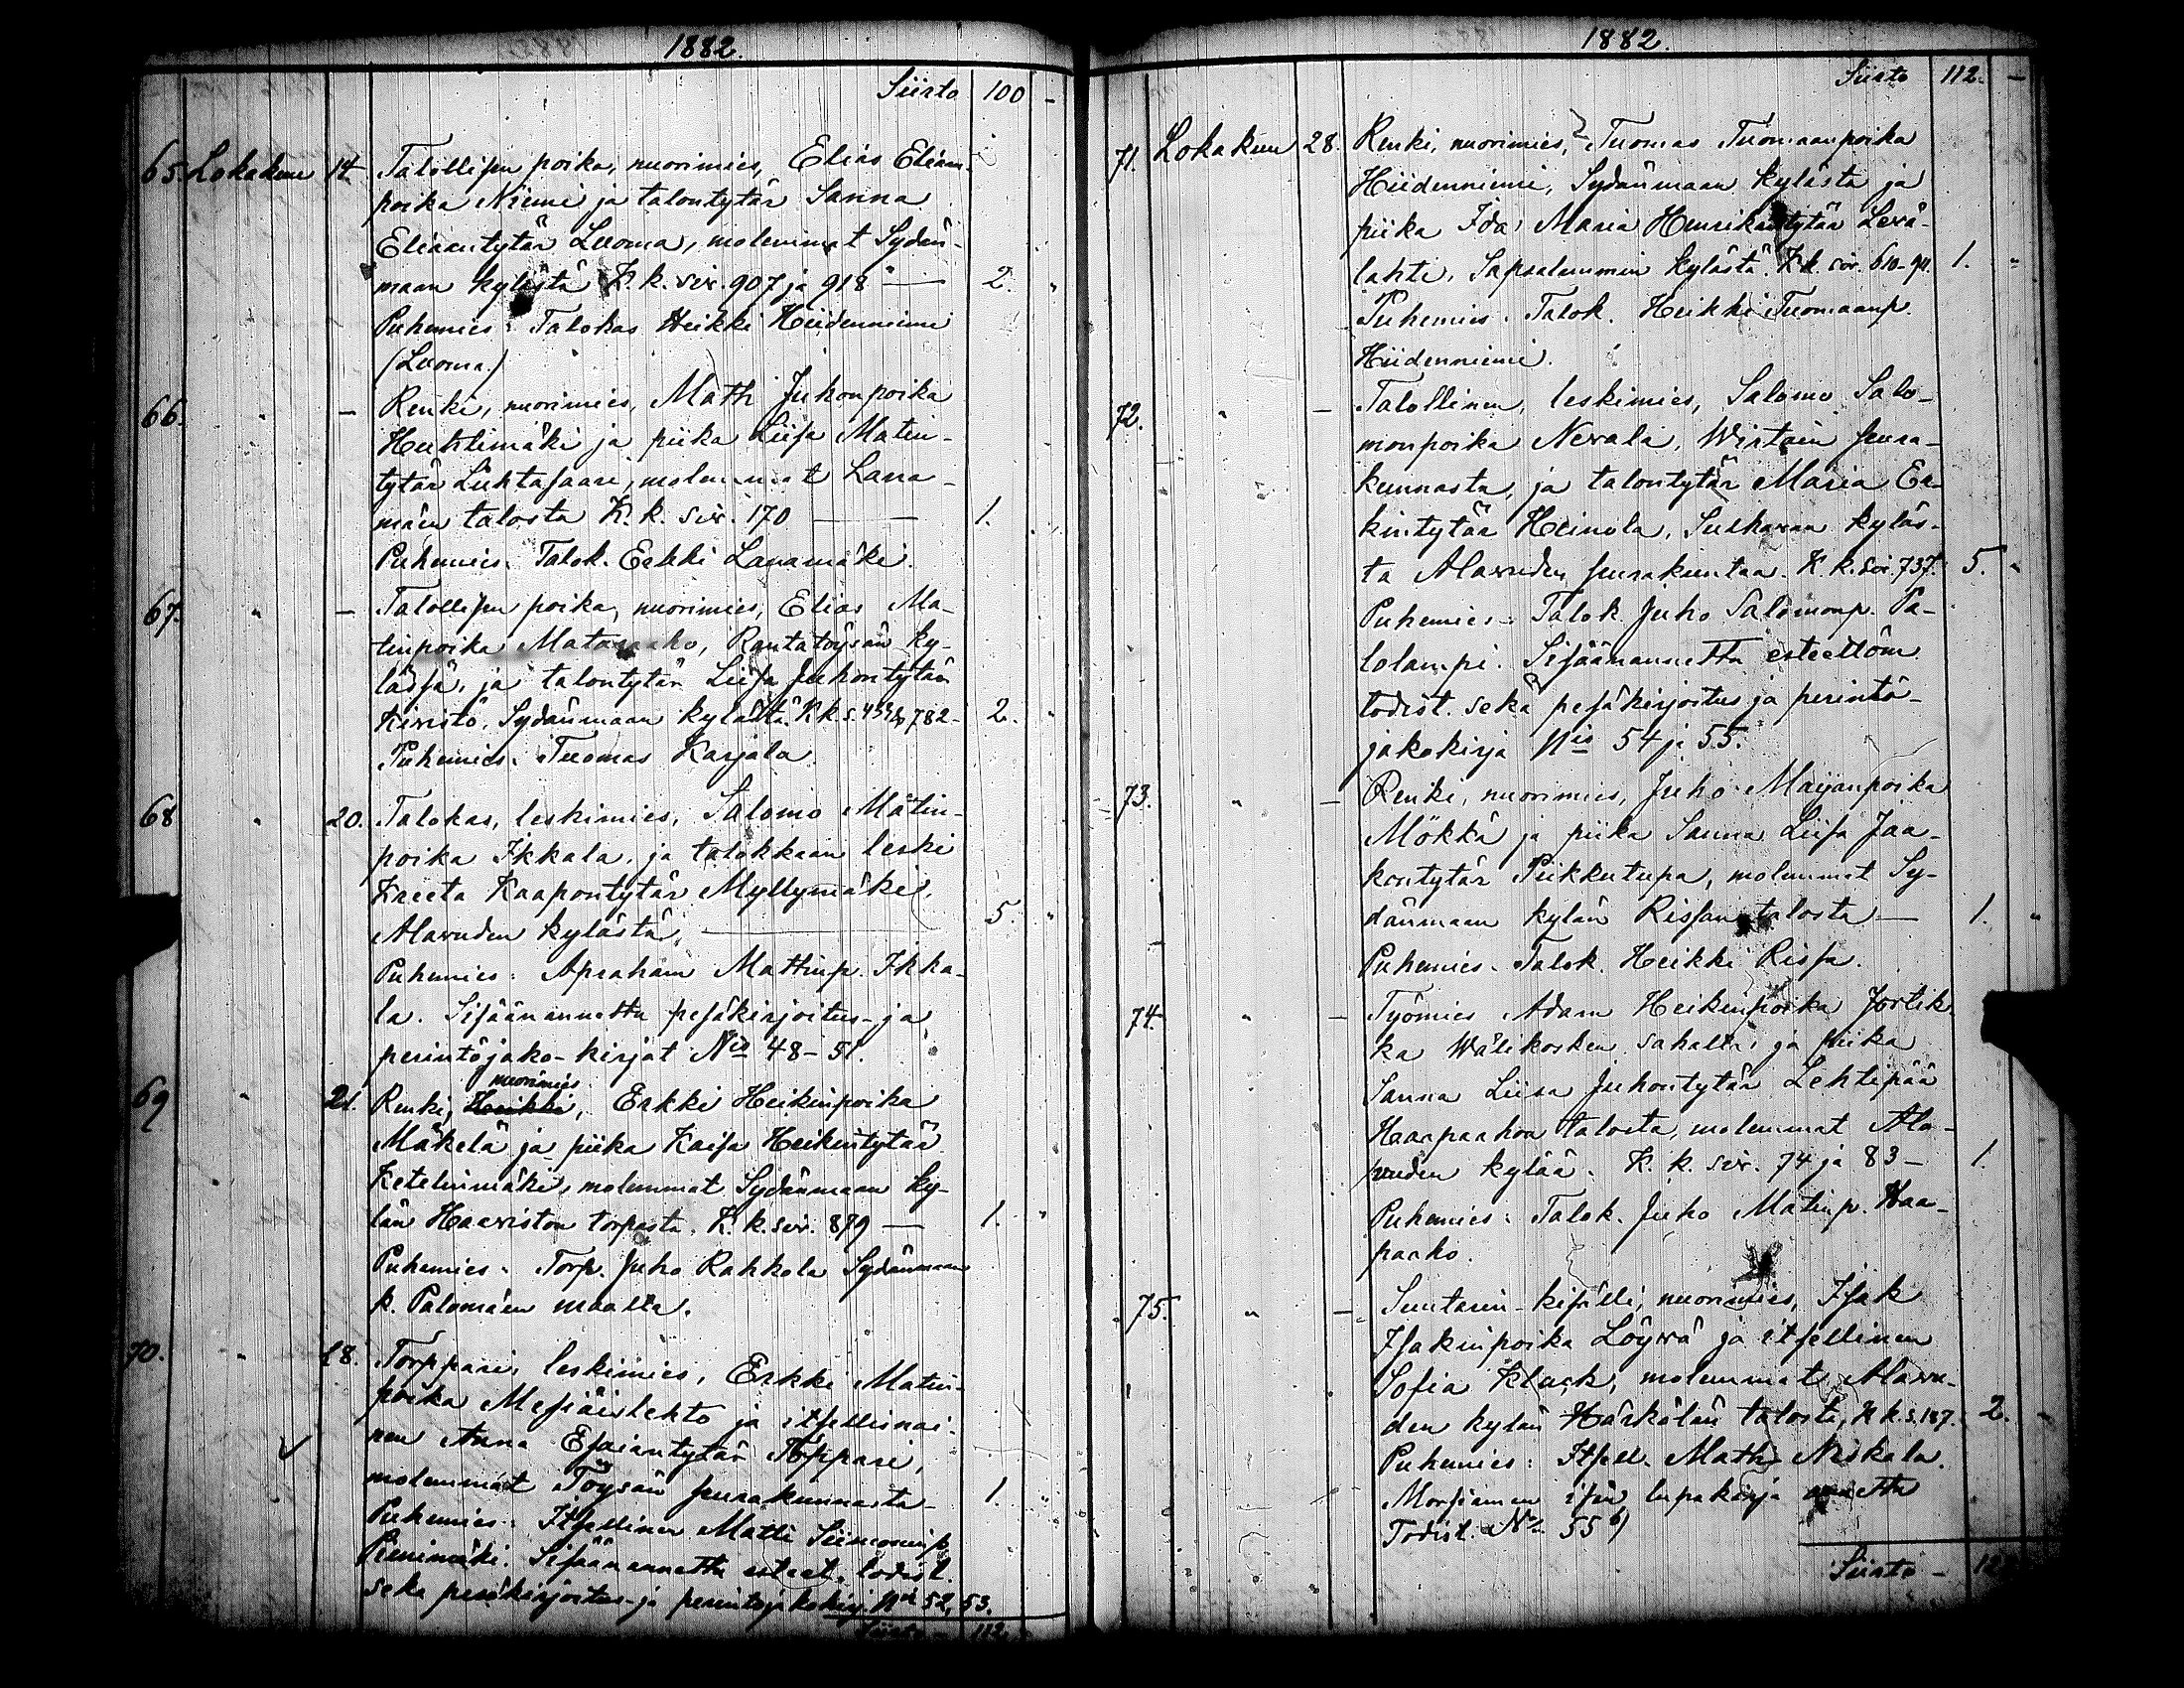 1882.
Siirto 100 -
65. Lokakuu 14 Talollisen poika, nuorimies, Elias Elian-
poika Niemi ja talontytär Sanna
Eliaantytär Luoma, molemmat Sydän-
maan kylästä K. k. siv. 907 ja 918 — 2. "
Puhemies: Talokas Heikki Hiidenniemi
(Luoma.)
66. " — Renki, nuorimies, Matti Juhonpoika
Huhtimäki ja piika Liisa Matin-
tytär Luhtasaari, molemmat Lana-
mäen talosta K. k. siv. 170 — 1.
Puhemies. Talok. Erkki Lanamäki.
67. " — Talollisen poika, nuorimies, Elias Ma-
tinpoika Mataraaho, Rantatöysän ky-
lässä, ja talontytär Liisa Juhontytär
Kivistö, Sydänmaan kylästä K k s. 782 - 2. "
Puhemies. Tuomas Karjala.
68 " 20. Talokas, leskimies, Salomo Matin-
poika Ikkala, ja talokkaan leski
Kreeta Kaapontytär Myllymäki,
Alavuden kylästä, — 5. "
Puhemies: Apraham Mattinp. Ikka-
la. Sisäänannettu pesäkirjoitus- ja
perintöjako-kirjat Nis 48-51.
nuorimies
69 " 21. Renki, Heikki, Erkki Heikinpoika
Mäkelä ja piika Kaisa Heikintytär
Ketelinmäki, molemmat Sydänmaan ky-
län Haariston torpasta. K. k. siv. 879 — 1. "
Puhemies. Torp. Juho Rahkola Sydänmaan
k. Palomäen maalta.
70. " 28. Torppari, leskimies, Erkki Matin-
poika Mesiäislehto ja itsellisnai-
nen Anna Esaiantytär Torppari,
molemmat Töysän seurakunnasta - 1. "
Puhemies: Itsellinen Matti Siimoninp.
Pienimäki. Sisäänannettu esteet. todist.
seka pesäkirjoitus- ja perintöjakokirj. Nis 52, 53.
Siirto - 112.
1882.
Siirto 112. -
71. Lokakuu 28. Renki, nuorimies, Tuomas Tuomaanpoika
Hiidenniemi, Sydänmaan kylästä ja
piika Ida Maria Henrikäntytär Levä-
lahti, Sapsalammin kylästä. K k. siv. 610-911. 1. "
Puhemies. Talok. Heikki Tuomaanp.
Hiidenniemi.
72. " — Talollinen, leskimies, Salomo Salo-
monpoika Nevala, Wirtain seura-
kunnasta, ja talontytär Maria Er-
kintytär Heinola, Sulkavan kyläs-
ta Alavuden seurakuntaa. K k. siv. 737. 5. "
Puhemies. Talok. Juho Salomonp. Pa-
lolampi. Sisäänannettu esteettöm.
todist. sekä pesäkirjoitus ja perintö-
jakokirja Nis 54 ja 55.
73. " — Renki, nuorimies, Juho Maijanpoika
Mökkä ja piika Sanna Liisa Jaa-
kontytär Piikkutupa, molemmat Sy-
dänmaan kylän Rissan talosta — 1. "
Puhemies. Talok. Heikki Rissa.
74. " — Työmies Adam Heikinpoika Jortik-
ka Wälikosken sahalta, ja piika
Sanna Liisa Juhontytär Lehtipää
Haapaahon talosta, molemmat Ala-
vuden kylää. K. k. siv. 74 ja 83 - 1.
Puhemies: Talok. Juho Matinp. Haa-
paaho.
75. " — Suutarin-kisälli, nuorimies, Isak
Isakinpoika Löyvä ja itsellinen
Sofia Kluck, molemmat Alavu-
den kylän Härkölän talosta, K k. s. 187. 2. -
Puhemies: Itsell. Matti Niskala.
Morsiamen isän lupakirja annettu
Todist. No 55 b)
Siirto -